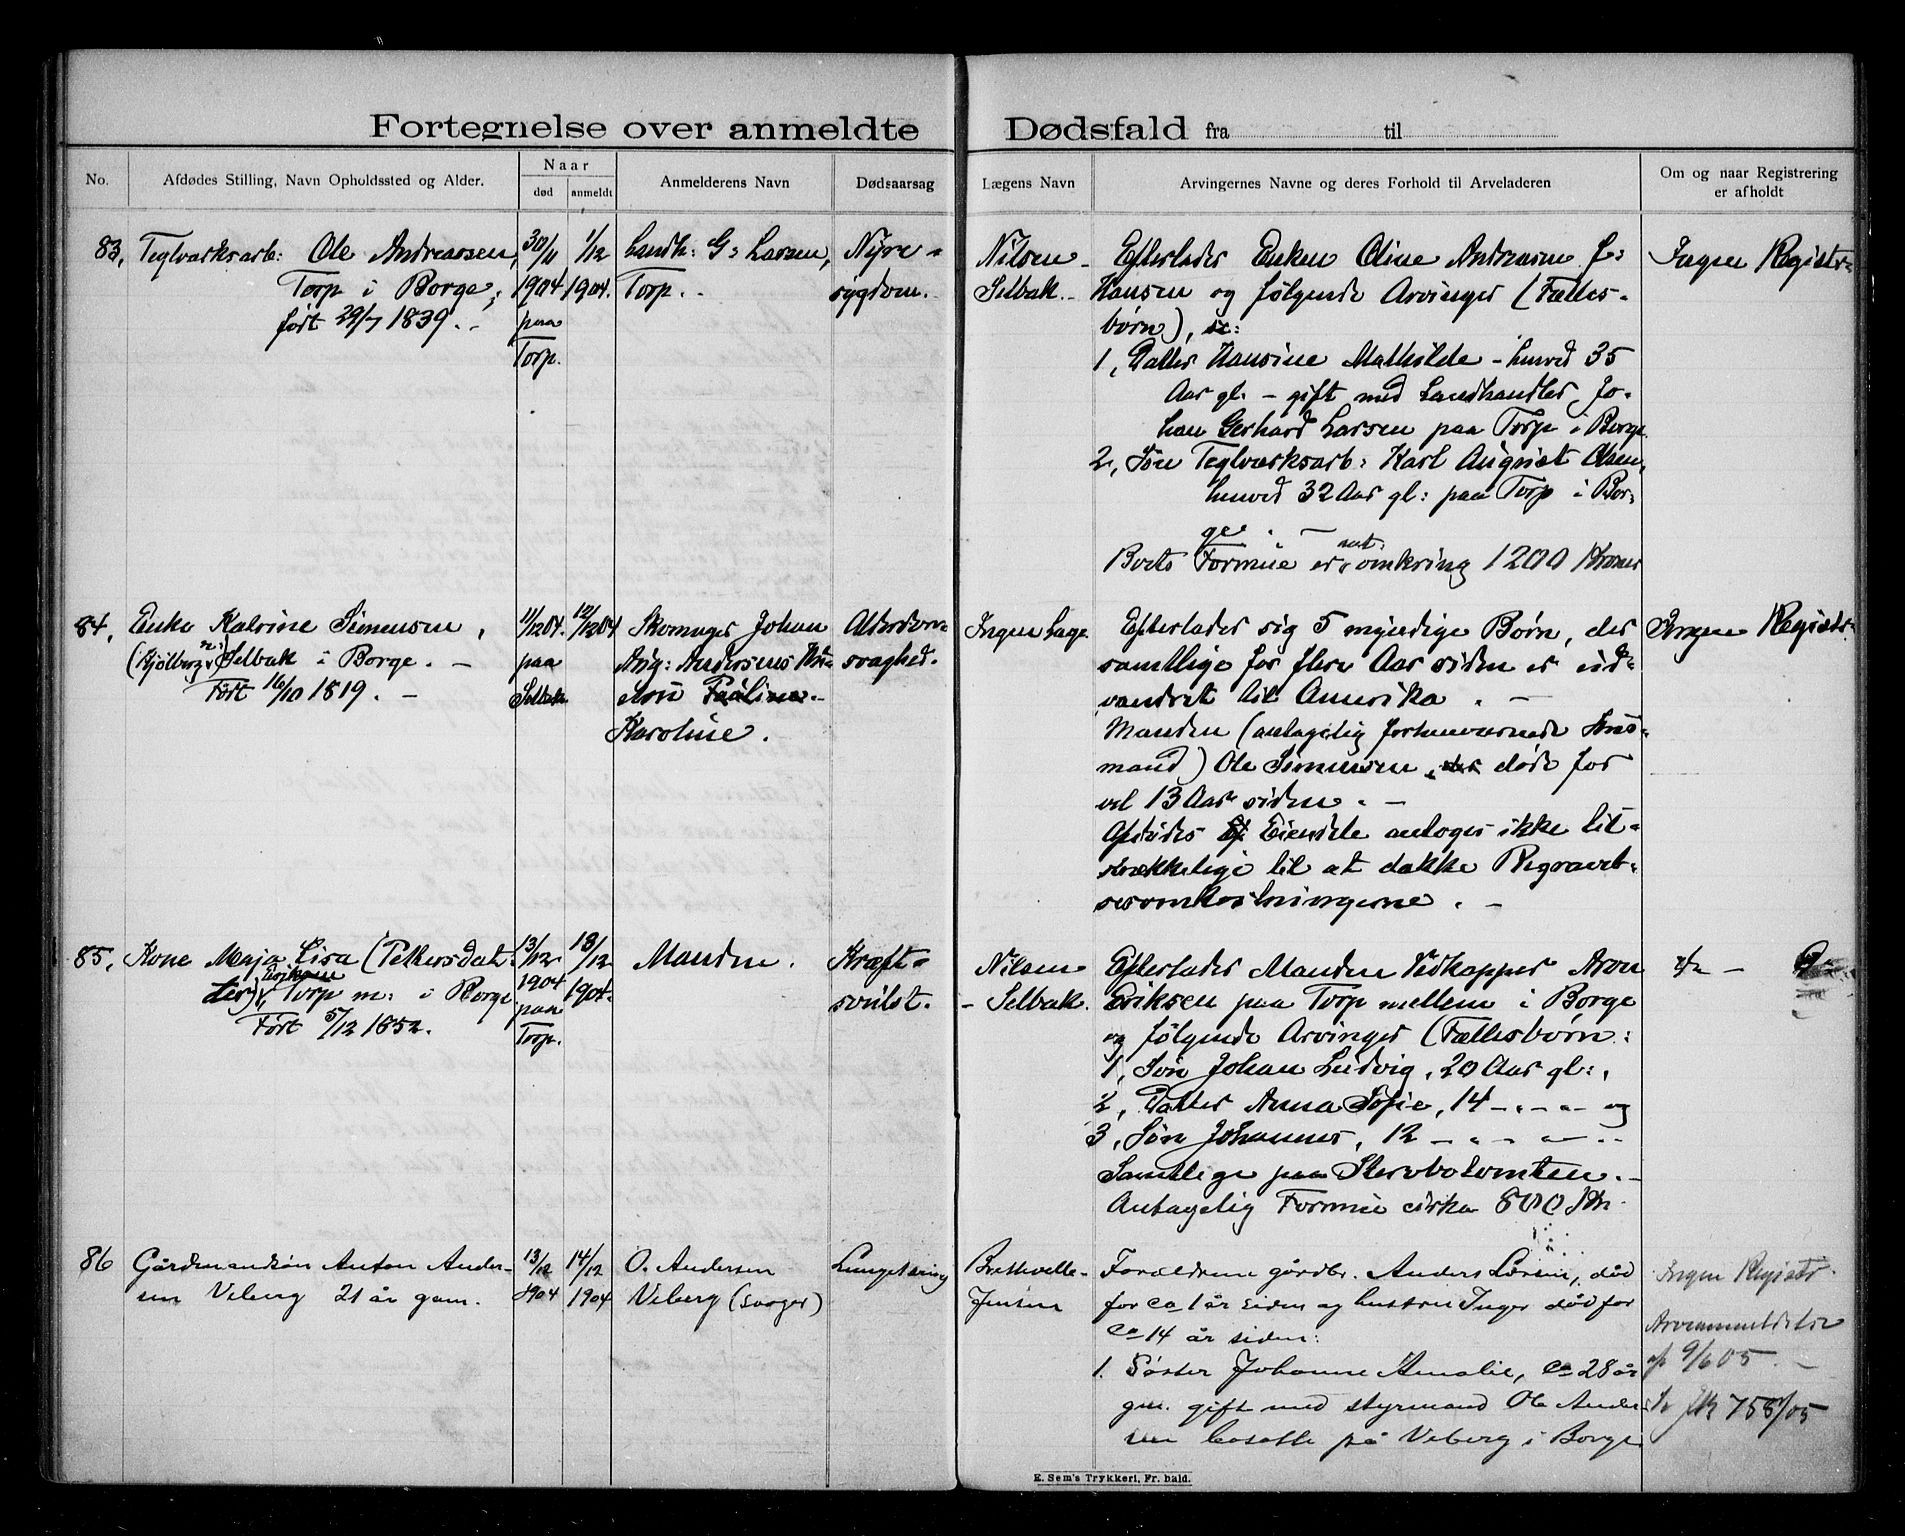 Fortegnelse over anmeldte Dødsfald fra til
No.
Afdødes Stilling, Navn Opholdssted og Alder.
Naar
død
anmeldt
Anmelderens Navn
Dødsaarsag
Lægens Navn
Arvingernes Navne og deres Forhold til Arveladeren
Om og naar Registrering
er afholdt
83, Teglværksarb: Ole Andreassen,
Torp i Borge,
født 29/7 1839.
30/11
1904
paa
Torp.
1/12
1904.
Landh: G: Larsen,
Torp.
Nyre-
sygdom.
Nilsen
Selbak.
Efterlader Enken Oline Andreasen f:
Hansen og følgende Arvinger (Fælles-
børn),
1, Datter Hansine Mathilde - henved 35
Aar gl. - gift med Landhandler Jo-
han Gerhard Larsen paa Torp i Borge.
2, Søn Teglværksarb: Karl August Olsen,
henved 32 Aar gl: paa Torp i Bor-
ge.
Boets Formue er omkring 1200 Kroner
Ingen Registr-
84, Enke Katrine Simensen,
(Kjølberg) Selbak i Borge.
Født 16/10 1819.
11/12 04.
paa
Selbak
12/12 04
Skomager Johan
Aug: Andersens Hu-
stru Pauline
Karoline.
Alderdoms-
svaghed.
Ingen Læge
Efterlader sig 5 myndige Børn, der
samtlige for flere Aar siden er ud-
vandret til Amerika.
Manden (antagelig forhenværende Hus-
mand) Ole Simensen, der døde for
vel 13 Aar siden.
Afdødes Eiendele antages ikke til-
strækkelige til at dække Begravel-
sesomkostningerne.
Ingen Registr-
85, Kone Maja Lisa (Pettersdat-
ter) Eriksen, Torp m: i Borge
Født 5/12 1852.
13/12
1904
paa
Torp.
18/12
1904.
Manden.
Kræft-
svulst.
Nilsen
- Selbak.
Efterlader Manden Vedkapper Aron
Eriksen paa Torp mellem i Borge
og følgende Arvinger (Fællesbørn:
1, Søn Johan Ludvig, 20 Aar gl:,
2, Datter Anna Sofie, 14 - " - " - og
3, Søn Johannes, 12 - " - " -
Samtlige paa Stervbotomten.
Antagelig Formue cirka 800 Kr.
86 Gårdmandsøn Anton Ander-
sen Viberg 21 år gam.
13/12
1904
14/12
1904
O. Andersen
Viberg (svoger)
Lungetæring
Brethville-
Jensen
Forældrene gårdbr. Anders Larsen, død
for ca 1 år siden og hustru Inger død for
ca 14 år siden:
1. Søster Johanne Amalie, ca 28 år
gm. gift med styrmand Ole Ander-
sen bosatte på Viberg i Borge
Ingen Registr.
Arveanmeldelse
af 9/6 05.
758/05
E. Sem's Trykkeri, Fr. hald.